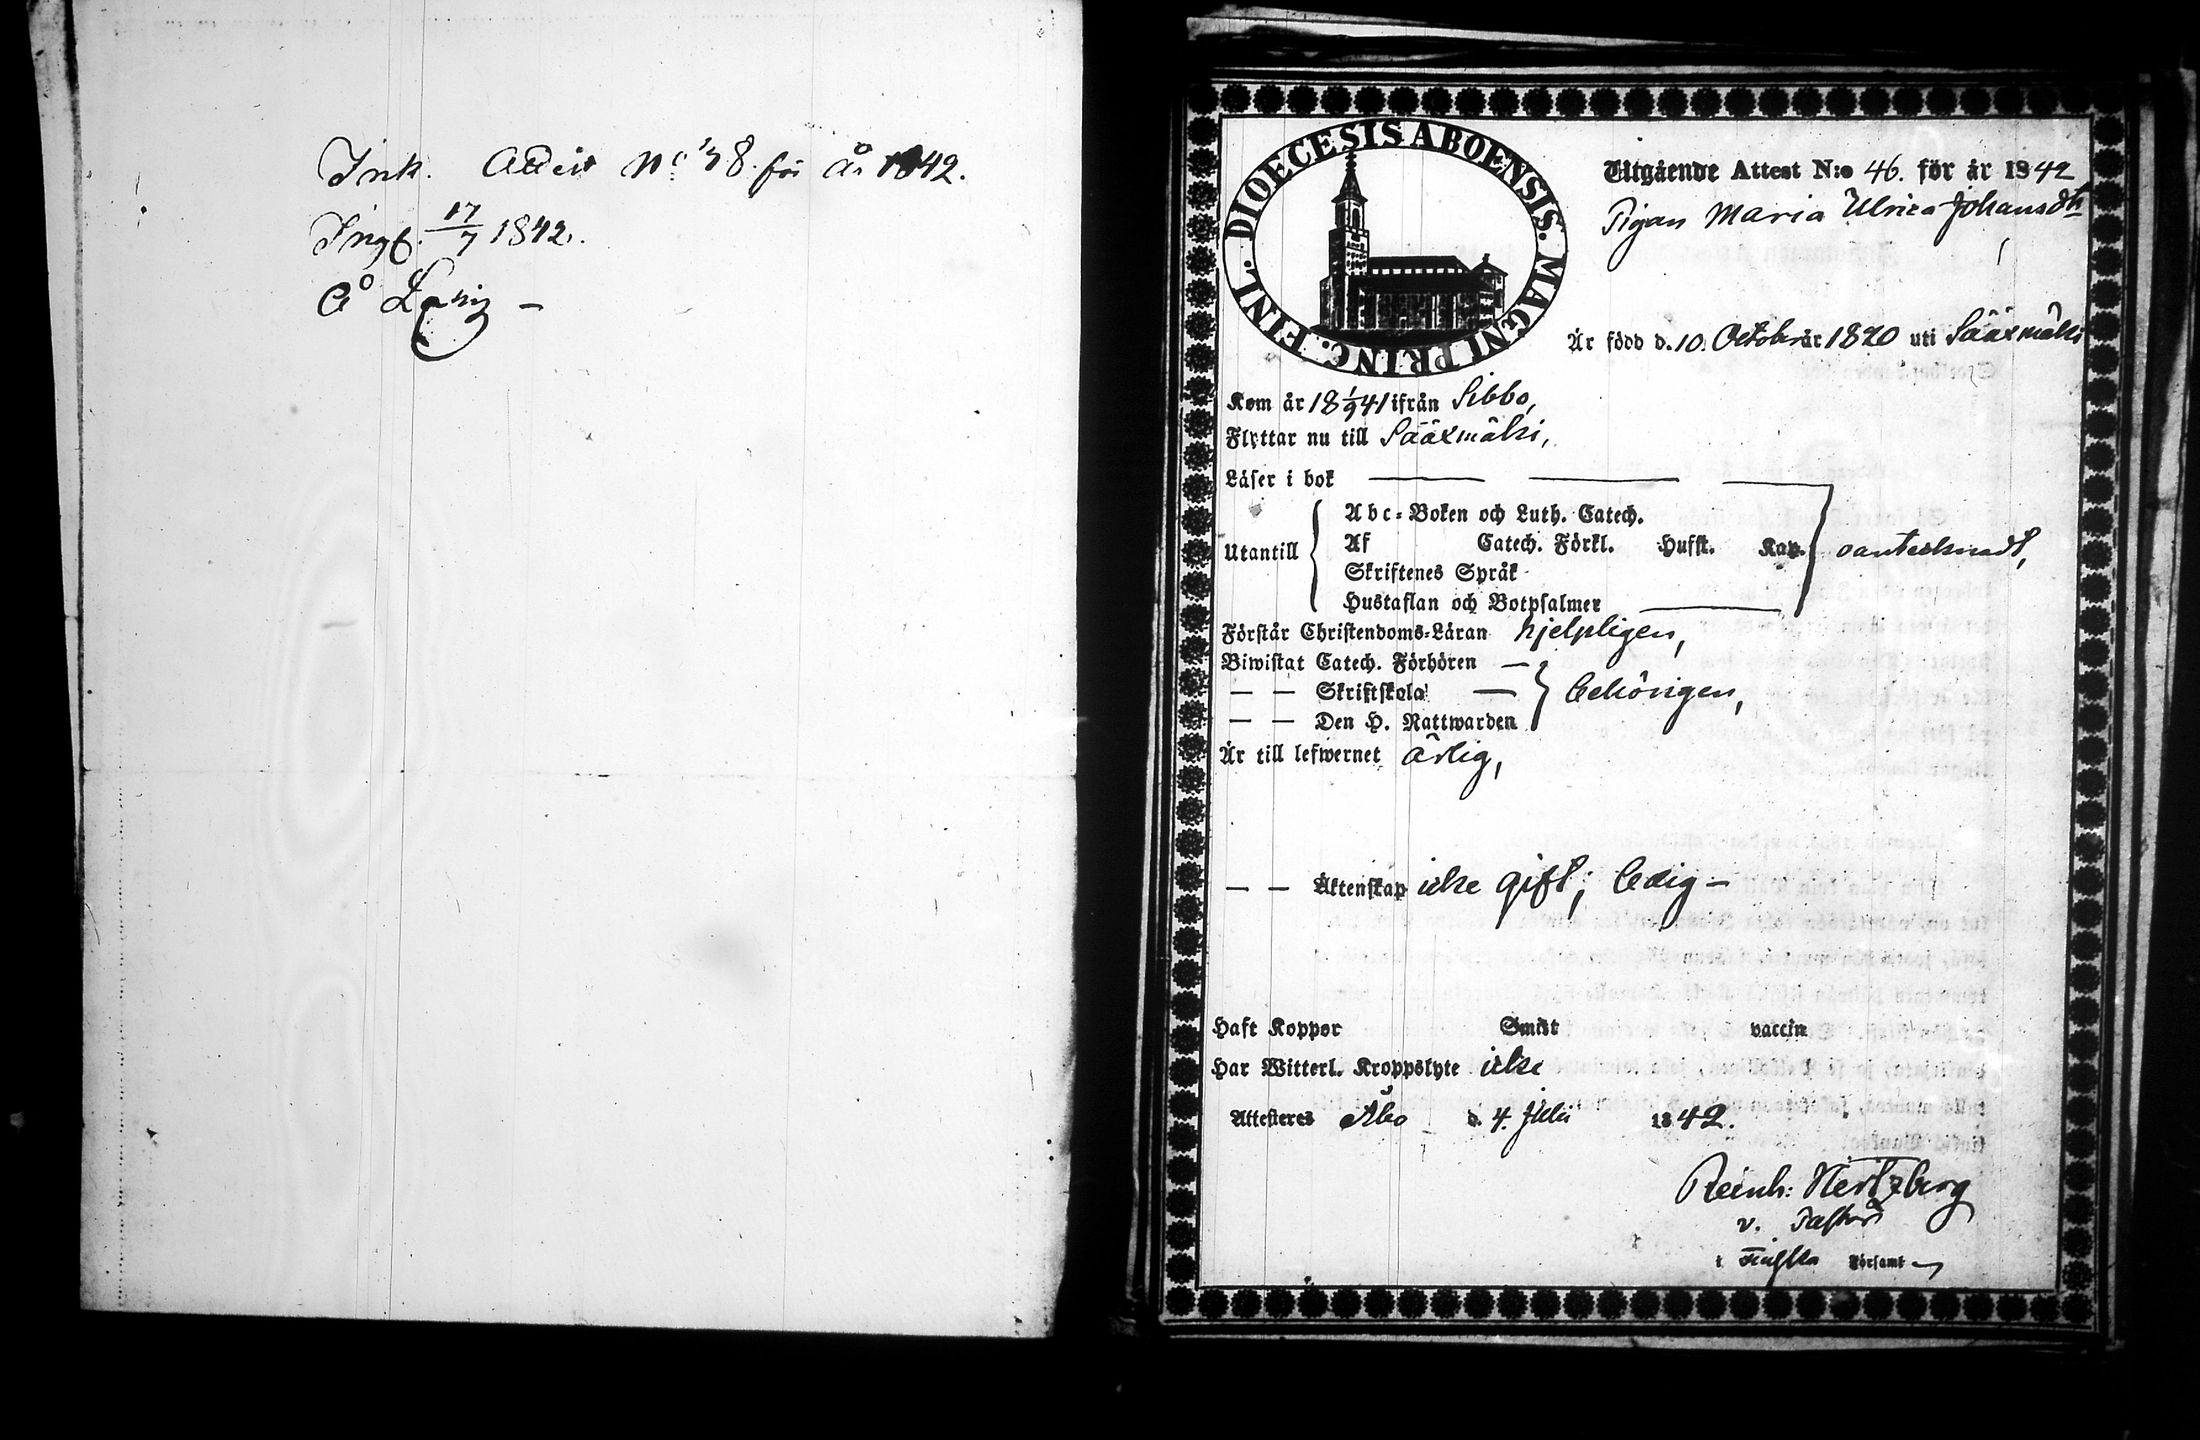 Ink. Attest No 38 för År 1842.
Ingf. 17/7 1842.
Å
DIOECESIS ABOENSIS. MAGNI PRINC. FINL.
Utgående Attest N:o 46. för år 1842
Pigan Maria Ulrica Johansdtr
Är född d. 10. October år 1820 uti Sääxmäki
Kom år 18 1/9 41 ifrån Sibbo,
Flyttar nu till Sääxmäki,
Läser i bok
Abc-Boken och Luth. Catech.
Utantill Af Catech. Förkl. Hufst. Kap. oantecknadt,
Skriftenes Språk
Hustaflan och Botpsalmer
Förstår Christendoms-Läran hjelpligen,
Biwistat Catech. Förhören —
— — Skriftskola — behörigen,
— — Den H. Nattwarden
Är till lefwernet ärlig,
— — Äktenskap icke gift; ledig —
Haft Koppor Smitt vaccin
Har Witterl. Kroppslyte icke
Attesteres Åbo d. 4. Julii 1842.
Reinh: Hertzberg
v. Pastor
i Finska Församl